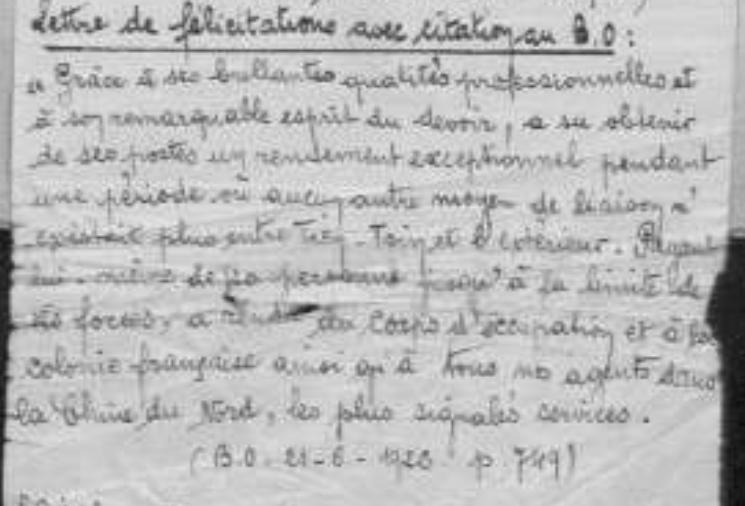 Lettre de félicitations avec citation au B.O :
« Grâce à ses brillantes qualités professionnelles et
à son remarquable esprit du devoir, a su obtenir
de ses postes un rendement exceptionnel pendant
une période où aucun autre moyen de liaison n'
existait plus entre Tien-Tsin et l'extérieur. Payant
lui-même de sa personne jusqu'à la limite de
ses forces, a rendu au Corps d'occupation et à la
colonie française ainsi qu'à tous nos agents dans
la Chine du Nord, les plus signalés services.
(B.O. 21-6-1926 p. 749)